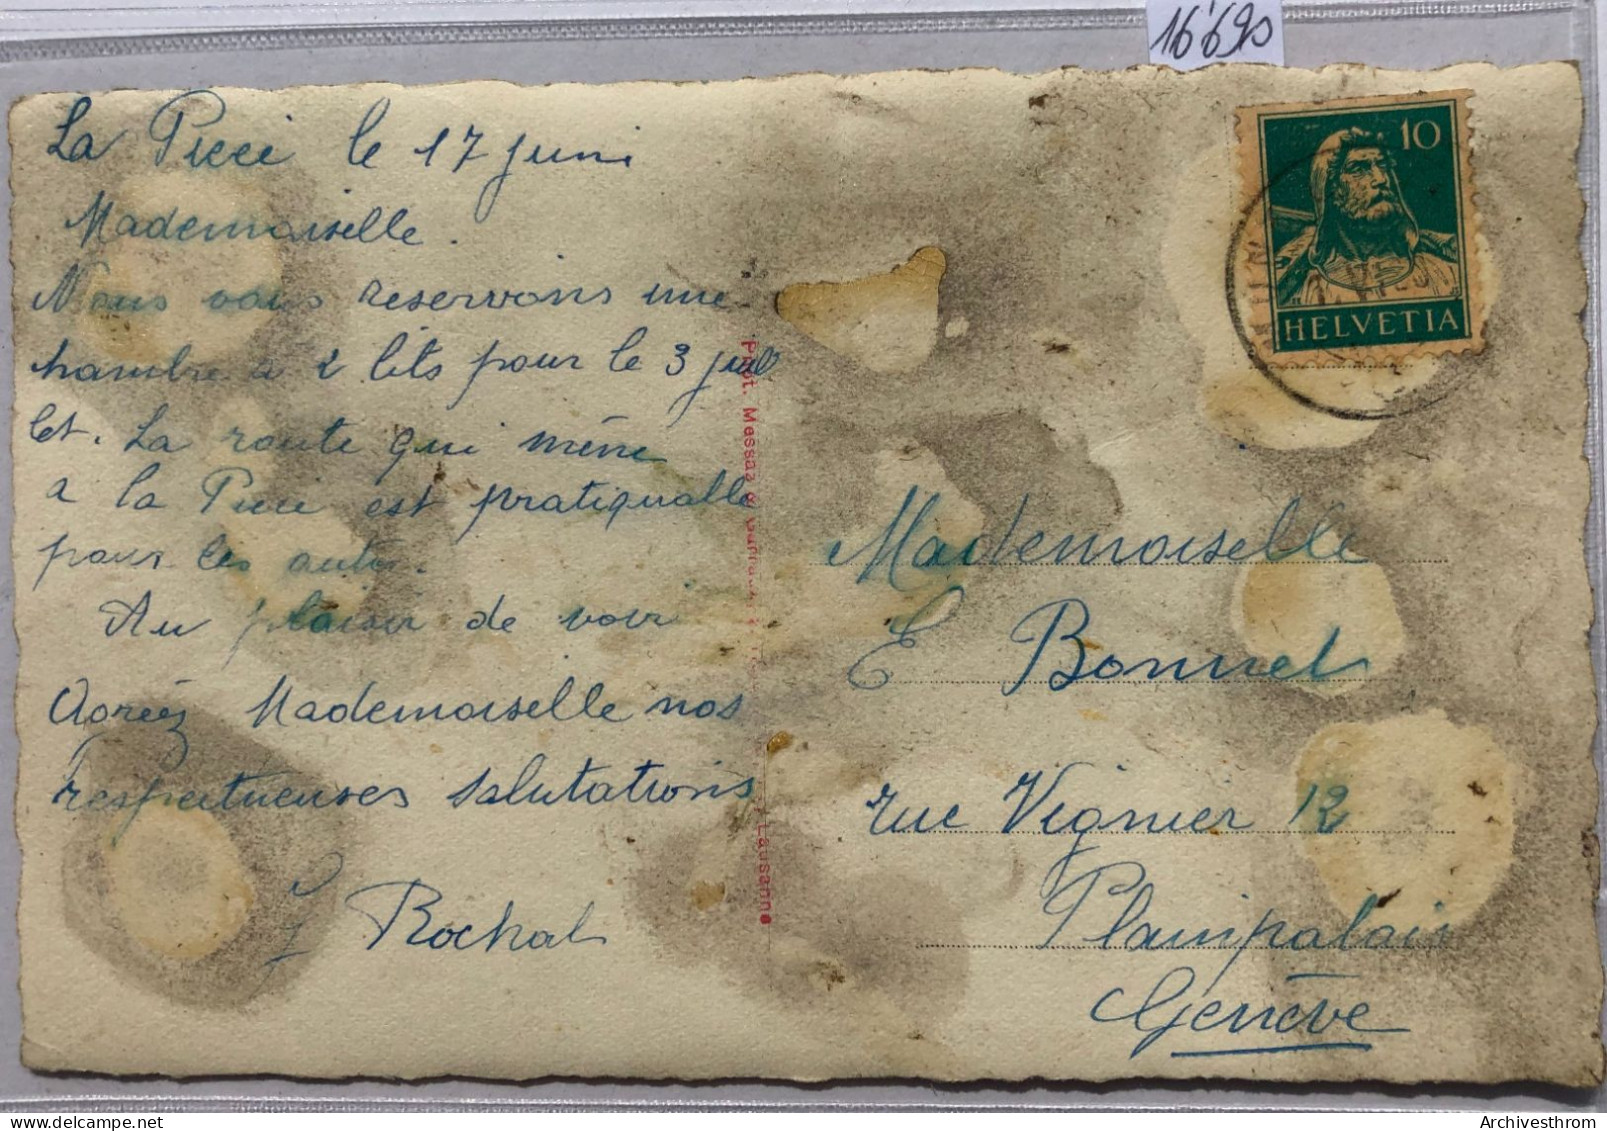 16'690
La Picci le 17 juin
Mademoiselle.
Nous vous reservons une
hambre a 2 lits pour le 3 juil
let. La route qui mène
a la Picci est pratiquable
pour les auto.
Au plaisir de voir
Agréez Mademoiselle nos
respectueuses salutations
J Rochat
Phot. Messaz & Garraux Lausanne
10
HELVETIA
Mademoiselle
E Bonnet
rue Vignier 12
Plainpalais
Genève
Archivesthrom